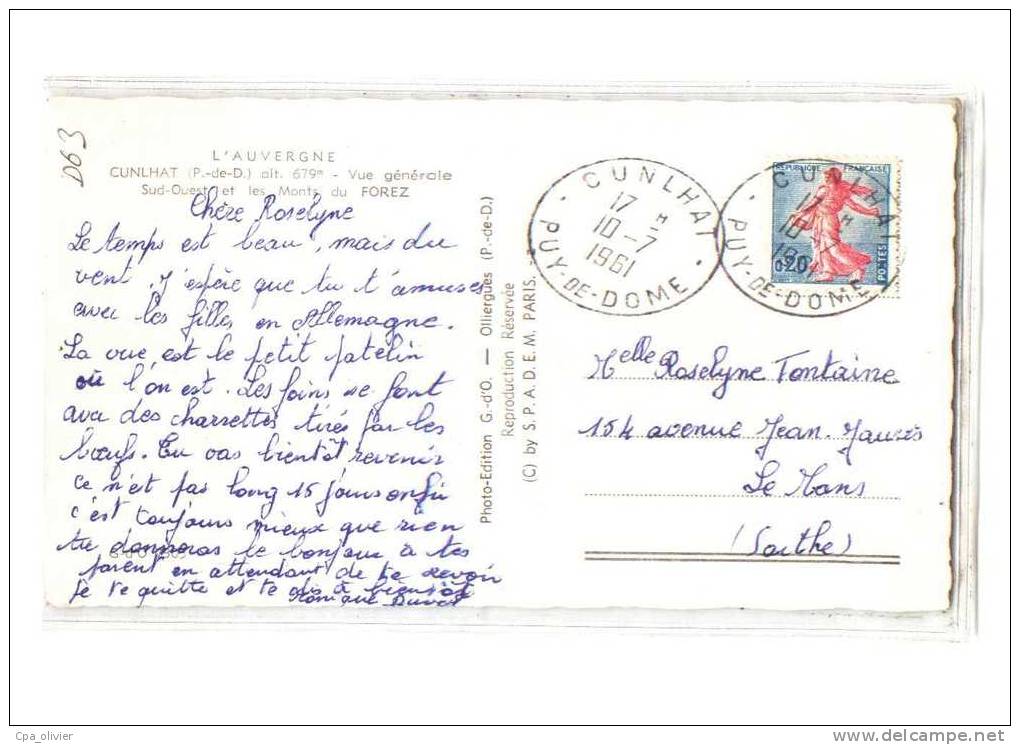 D63
L'AUVERGNE
CUNLHAT (P.-de-D.) alt. 679m - Vue générale
Sud-Ouest et les Monts du FOREZ
Chère Roselyne
Le temps est beau, mais du
vent. J'espère que tu t'amuses
avec les filles en Allemagne.
La vue est le petit patelin
où l'on est. Les foins se font
avec des charrettes tirés par les
bœufs. Tu vas bientôt revenir
ce n'est pas long 15 jours enfin
c'est toujours mieux que rien
tu donneras le bonjour à tes
parent en attendant de te revoir
je te quitte et te dis à bientôt
Monique
Photo-Edition G.-d'O. — Ollierques (P.-de-D.)
Reproduction Réservée
(C) by S.P.A.D.E.M. PARIS.
CUNLHAT
17 H
10-7
1961
PUY-DE-DOME
REPUBLIQUE FRANÇAISE
0,20
POSTES
CUNLHAT
17 H
10-7
1961
PUY-DE-DOME
Melle Roselyne Fontaine
154 avenue Jean-Jaurès
Le Mans
(Sarthe)
Cpa_olivier
www.delcampe.net